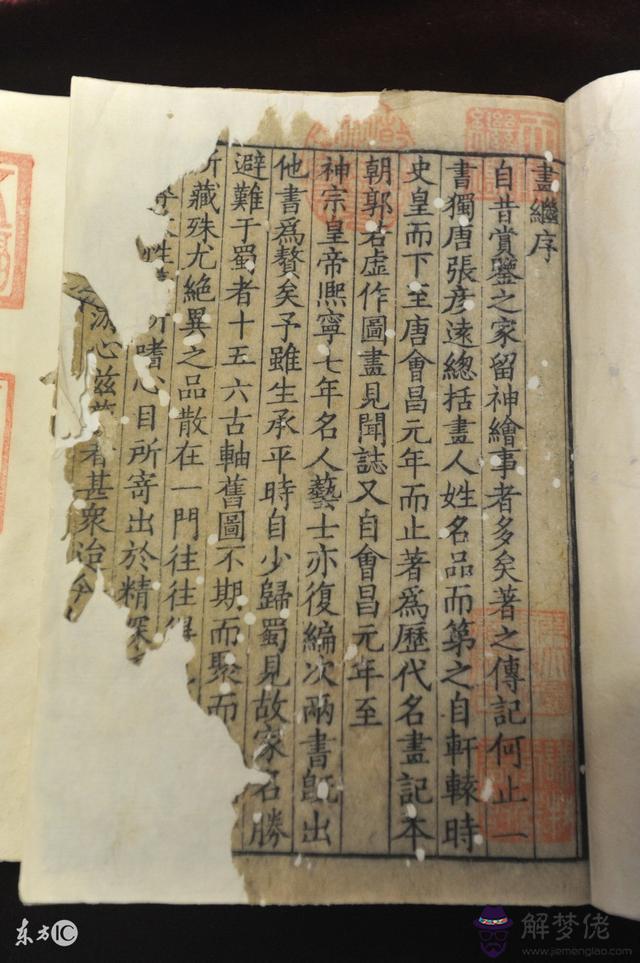 畫繼序
自昔賞鑒之家留神繪事者多矣著之傳記何止一
書獨唐張彦遠總括畫人姓名品而第之自軒轅時
史皇而下至唐會昌元年而止著為歷代名畫記本
朝郭若虛作圖畫見聞誌又自會昌元年至
神宗皇帝熈寧七年名人藝士亦復編次兩書旣出
他書為贅矣予雖生承平時自少歸蜀見故家名勝
避難于蜀者十五六古軸舊圖不期而聚而
所藏殊尤絶異之品散在一門往往得
性 所嗜心目所寄出於精深
游心兹 者甚衆迨今
东方IC
解梦佬
www.jiemenglao.com